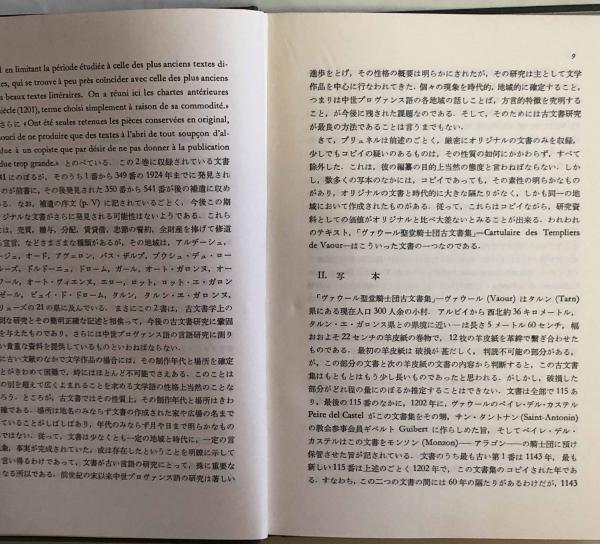 en limitant la période étudiée à celle des plus anciens textes di-
tes, qui se trouve à peu près coïncider avec celle des plus anciens
beaux textes littéraires. On a réuni ici les chartes antérieures
siècle (1201), terme choisi simplement à raison de sa commodité.»
さらに «Ont été seules retenues les pièces conservées en original,
ouci de ne produire que des textes à l'abri de tout soupçon d'al-
à un copiste que par désir de ne pas donner à la publication
due trop grande.» とのべている。この2巻に収録されている文書
41 にのぼるが、そのうち1番から349番の1924年までに発見され
のが前書に、その後発見された350番から541番が後の補遺に収め
る。なお、補遺の序文 (p. V) に記されているごとく、今後この期
ジナルな文書がさらに発見される可能性はないようである。これら
は、売買、贈与、分配、賃貸借、忠節の誓約、全財産を捧げて修道
宣言、などさまざまな種類があるが、その地域は、アルデーシュ、
ージュ、オード、アヴェロン、バス・ザルプ、ブウシュ・デュ・ロー
ルーズ、ドルドーニュ、ドローム、ガール、オート・ガロンヌ、オー
ワール、オート・ヴィエンヌ、エロー、ロット、ロット・エ・ガロン
ゼール、ピュイ・ド・ドローム、タルン、タルン・エ・ガロンヌ、
リューズの21の県に及んでいる。まさにこの書は、古文書学上の
別な研究とその簡明正確な記述と相俟って、今後の古文書研究に鞏固
を与えたものであり、さらには中世プロヴァンス語の言語研究に測り
い貴重な資料を提供しているものといわねばならない。
に古い文献のなかで文学作品の場合には、その制作年代と場所を確定
とがきわめて困難で、時にはほとんど不可能でさえある。このことは
の別を超えて広くよまれることを求める文学語の性格上当然のことな
ろう。ところが、古文書ではその性質上、その制作年代と場所はきわ
確である。場所は地名のみならず文書の作成された家や広場の名まで
ていることがしばしばあり、年代のみならず月や日まで明らかなもの
ではない。従って、文書は少なくとも一定の地域と時代に、一定の言
現象、事実が完成されていた、或は存在したということを明瞭に示して
言い得るわけであって、文書が古い言語の研究にとって、殊に重要な
なる所以である。前世紀の末以来中世プロヴァンス語の研究は著しい
9
進歩をとげ、その性格の概要は明らかにされたが、その研究は主として文学
作品を中心に行なわれてきた。個々の現象を時代的、地域的に確定すること、
つまりは中世プロヴァンス語の各地域の話しことば、方言的特徴を究明する
こと、が今後に残された課題なのである。そして、そのためには古文書研究
が最良の方法であることは言うまでもない。
さて、ブリュネルは前述のごとく、厳密にオリジナルの文書のみを収録、
少しでもコピイの疑いのあるものは、その性質の如何にかかわらず、すべて
除外した。これは、彼の編纂の目的上当然の態度と言わねばならない。しか
し、数多くの写本のなかには、コピイであっても、その素性の明らかなもの
があり、オリジナルの文書と時代的に大きな隔りがなく、しかも同一の地域
において作成されたものがある。従って、これらはコピイながら、研究資
料としての価値がオリジナルと比べ大差ないとみることが出来る。われわれ
のテキスト、「ヴァウール聖堂騎士団古文書集」—Cartulaire des Templiers
de Vaour—はこういった文書の一つなのである。
II. 写 本
「ヴァウール聖堂騎士団古文書集」—ヴァウール (Vaour) はタルン (Tarn)
県にある現在人口 300 人余の小村。アルビイから西北約 36 キロメートル、
タルン・エ・ガロンヌ県との県境に近い—は長さ5メートル 60 センチ、幅
おおよそ 22 センチの羊皮紙の巻物で、12 枚の羊皮紙を革紐で繋ぎ合わせた
ものである。最初の羊皮紙は破損が甚だしく、判読不可能の部分がある。
が、この部分の文書と次の羊皮紙の文書の内容から判断すると、この古文書
集はもともとはもう少し長いものであったと思われる。がしかし、破損した
部分がどれ程の量にのぼるか推定することはできない。文書は全部で 115 あ
り、最後の 115 番のなかに、1202年に、ヴァウールのペイレ・デル・カステル
Peire del Castel がこの文書集をその甥、サン・タントナン (Saint-Antonin)
の教会参事会員ギベルト Guibert に作らしめた旨、そしてペイレ・デル・カ
ステルはこの文書をモンソン (Monzon)——アラゴン——の騎士団に預け
保管させた旨が記されている。文書のうち最も古い第1番は 1143 年、最も
新しい 115 番は上述のごとく 1202 年で、この文書集のコピイされた年であ
る。すなわち、この二つの文書の間には 60 年の隔たりがあるわけだが、1143